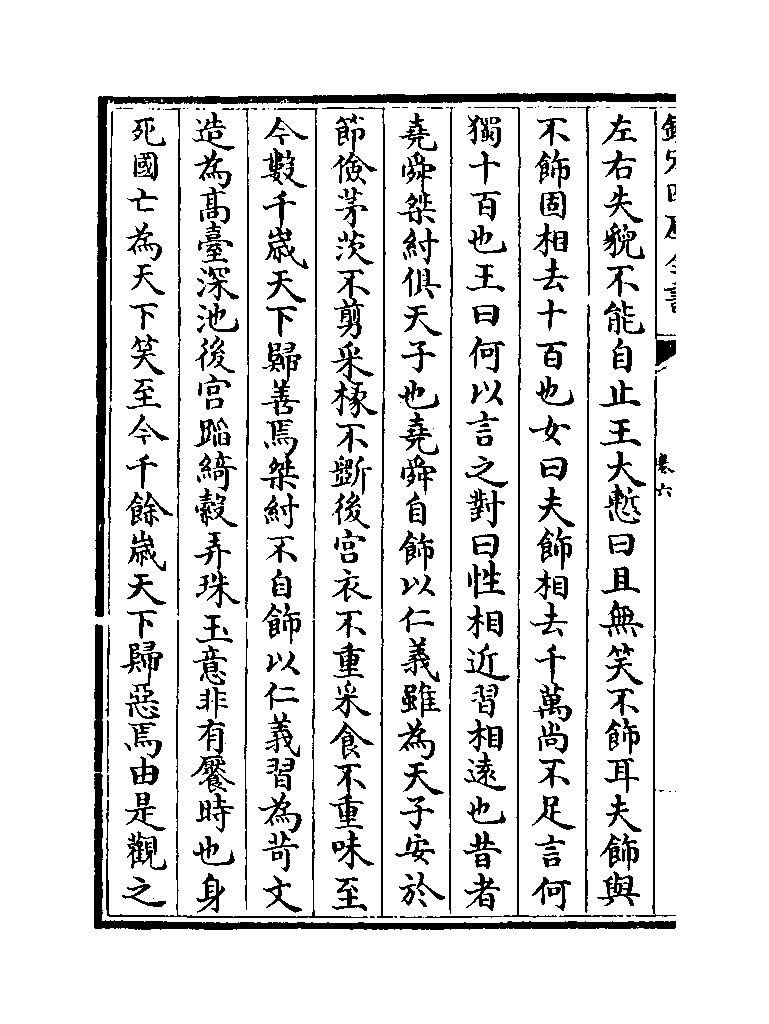 欽定四庫全書
卷六
左右失貌不能自止王大慙曰且無笑不飾耳夫飾與
不飾固相去十百也女曰夫飾相去千萬尚不足言何
獨十百也王曰何以言之對曰性相近習相遠也昔者
堯舜桀紂俱天子也堯舜自飾以仁義雖為天子安於
節儉茅茨不剪采椽不斵後宫衣不重采食不重味至
今數千歳天下歸善焉桀紂不自飾以仁義習為苛文
造為髙臺深池後宫蹈綺縠弄珠玉意非有饜時也身
死國亡為天下笑至今千餘歳天下歸惡焉由是觀之